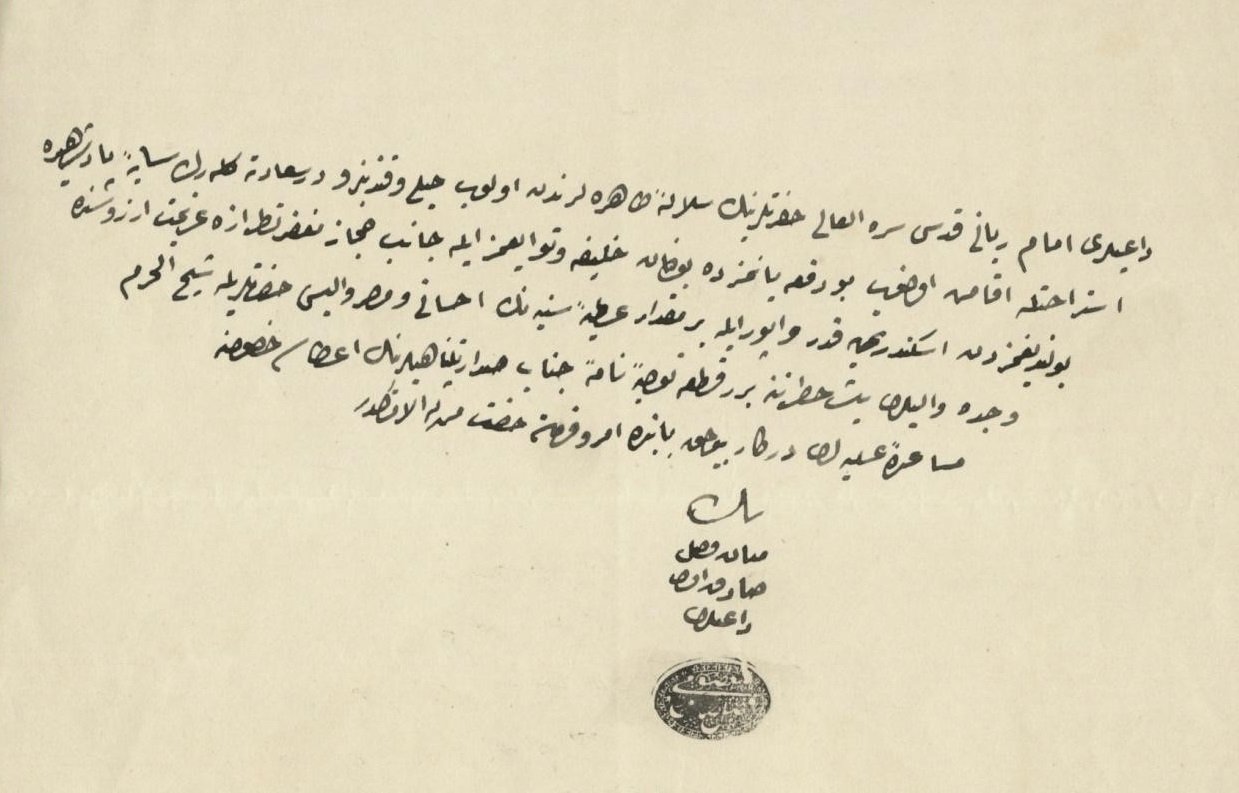 داعیلری امام ربانی قدس سره العالی حضرتلرینك سلالهٔ طاهره لرندن اولوب چلی وقندیزو درسعادته كله رك سایهٔ پادشاهیده
استراحتله اقامت اولنوب بو دفعه یانمزده بولنان خلیفه وتوابعمز ایله جانب حجاز مغفرتطرازه عزیمت ارزوسنده
بولندیغمزدن اسكندریه یه قدر واپور ایله بر مقدار عطیهٔ سنیه نك احسانی ومصر والیسی حضرتلریله شیخ الحرم
وجده والیلری حضراتنه برر قطعه توصیه نامهٔ جناب صدارتپناهیلرینك اعطاسی خصوصنه
مساعدهٔ علیه لری دركار بیورلمق بابنده امر وفرمان حضرت من له الامركدر
بنده
میان فضل
صادق افندی
داعیلری